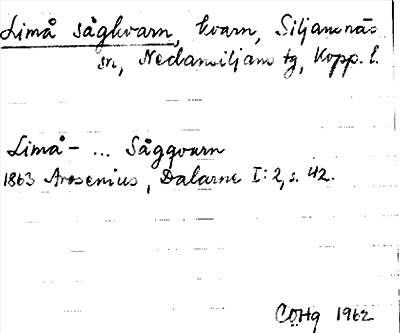 Limå sågkvarn, kvarn, Siljansnäs
sn, Nedansiljans tg, Kopp. l.
Limå- ... Sågqvarn
1863 Arosenius, Dalarne I:2, s. 42.
CÖHg 1962